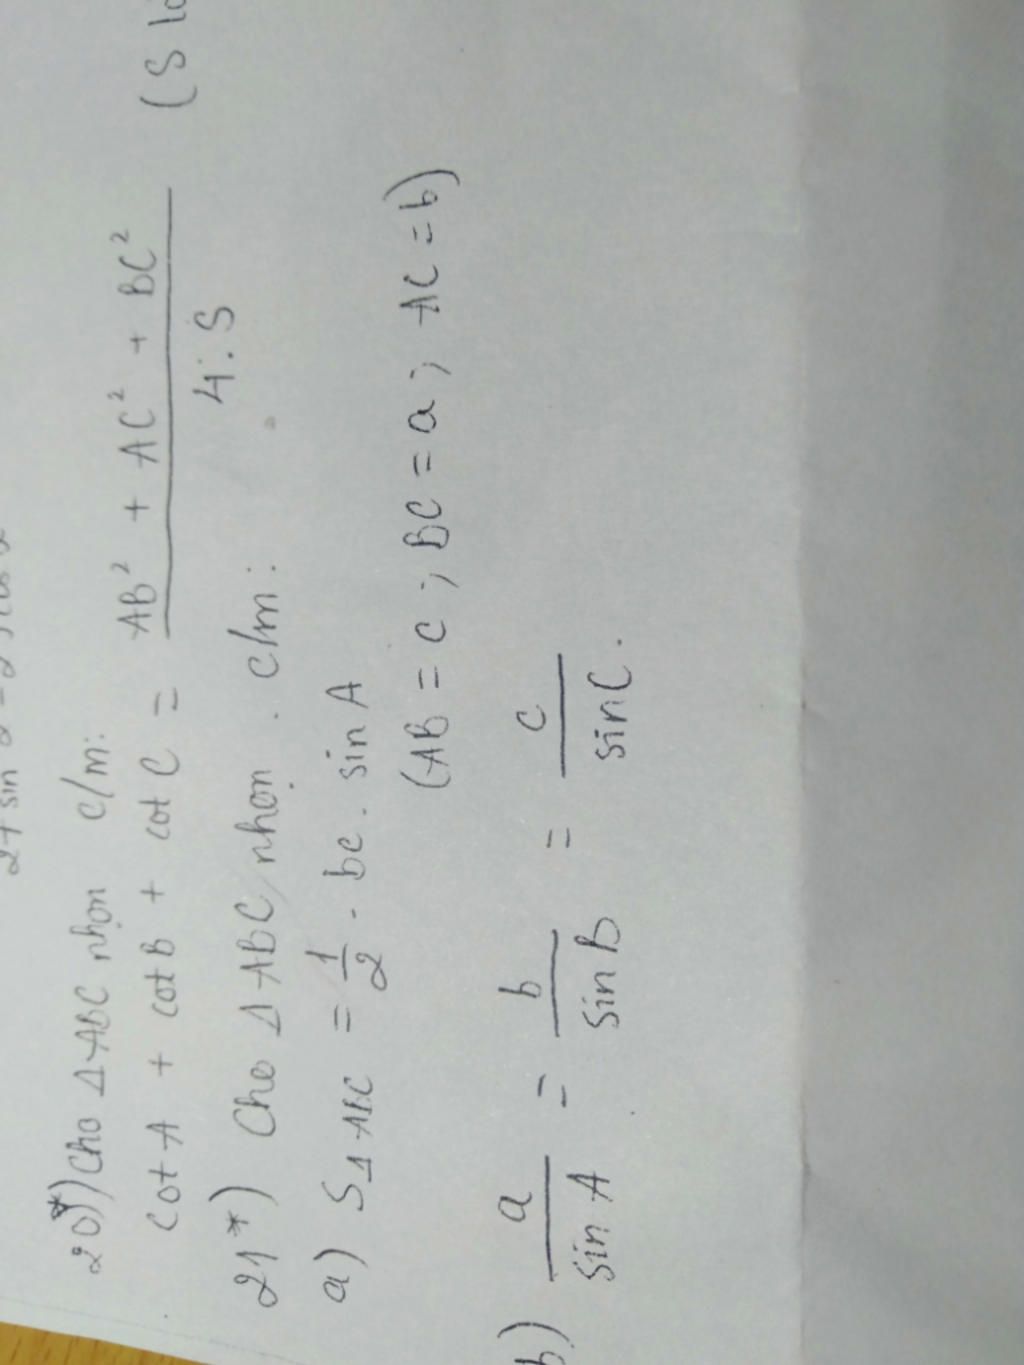 2+ sin
20*) Cho Δ ABC nhọn c/m:
cot A + cot B + cot C = AB² + AC² + BC² / 4.S (S
21*) Cho Δ ABC nhọn. c/m:
a) SΔABC = 1/2 . bc . sin A
(AB = c ; BC = a ; AC = b)
b) a / sin A = b / sin B = c / sin C.